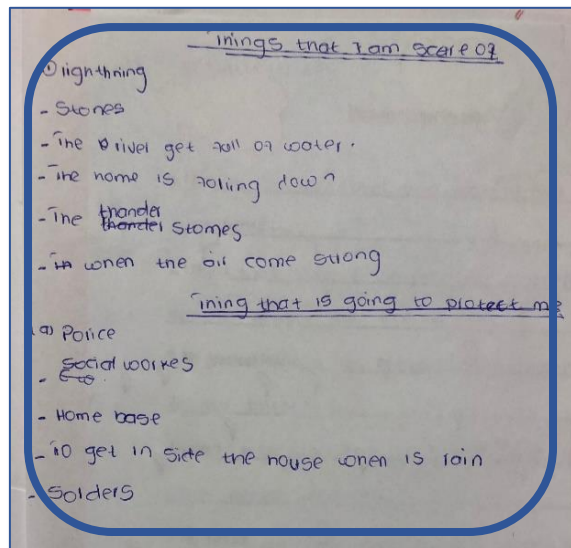 Things that I am scare of
① lighthning
- Stones
- The river get full of water.
- The home is foling down
- The thander stomes
- when the air come strong
Thing that is going to protect me
a) Police
- Social workes
- Home base
- To get in side the house when is rain
- Solders